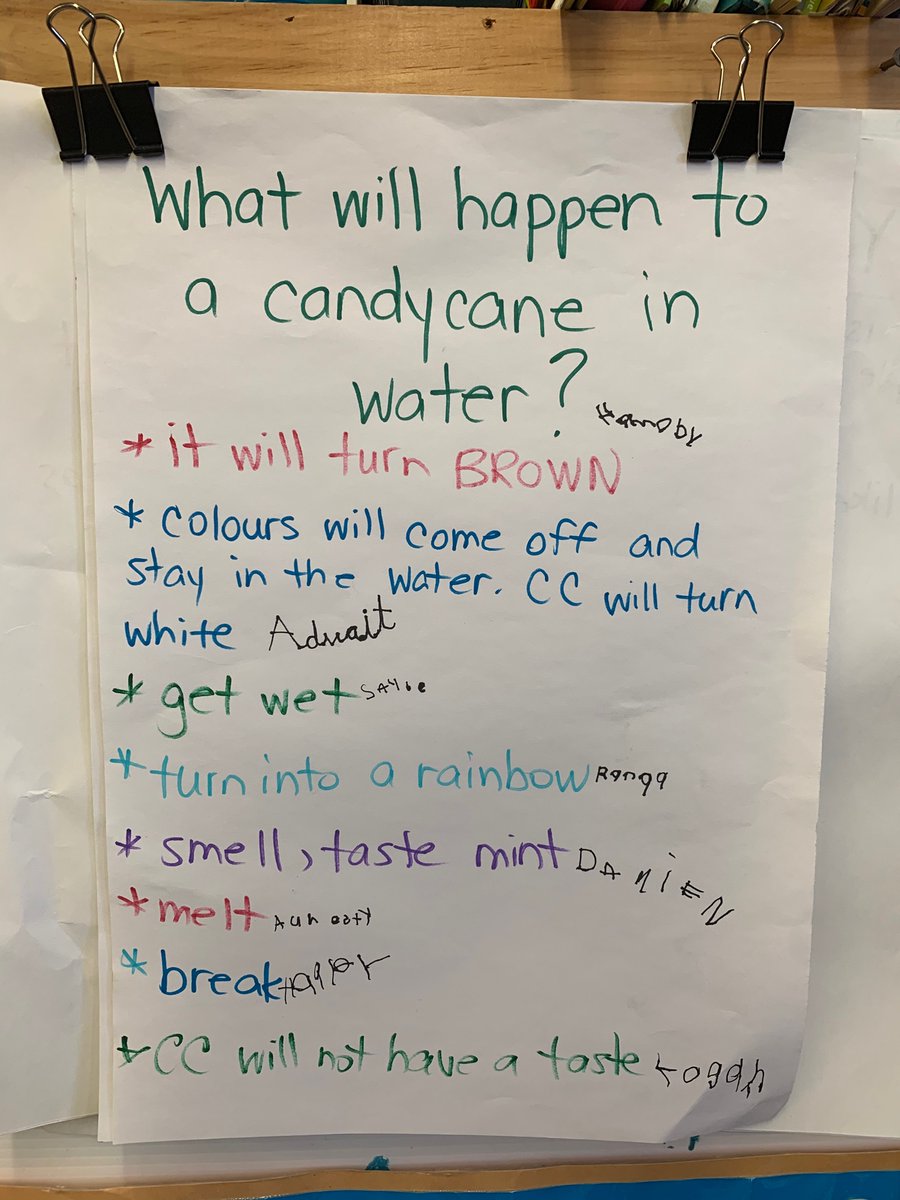 What will happen to
a candycane in
water?
* it will turn BROWN
* colours will come off and
stay in the water. CC will turn
white Advait
* get wet
* turn into a rainbow Ranga
* smell, taste mint DANIEN
* melt
* break
* CC will not have a taste Logan